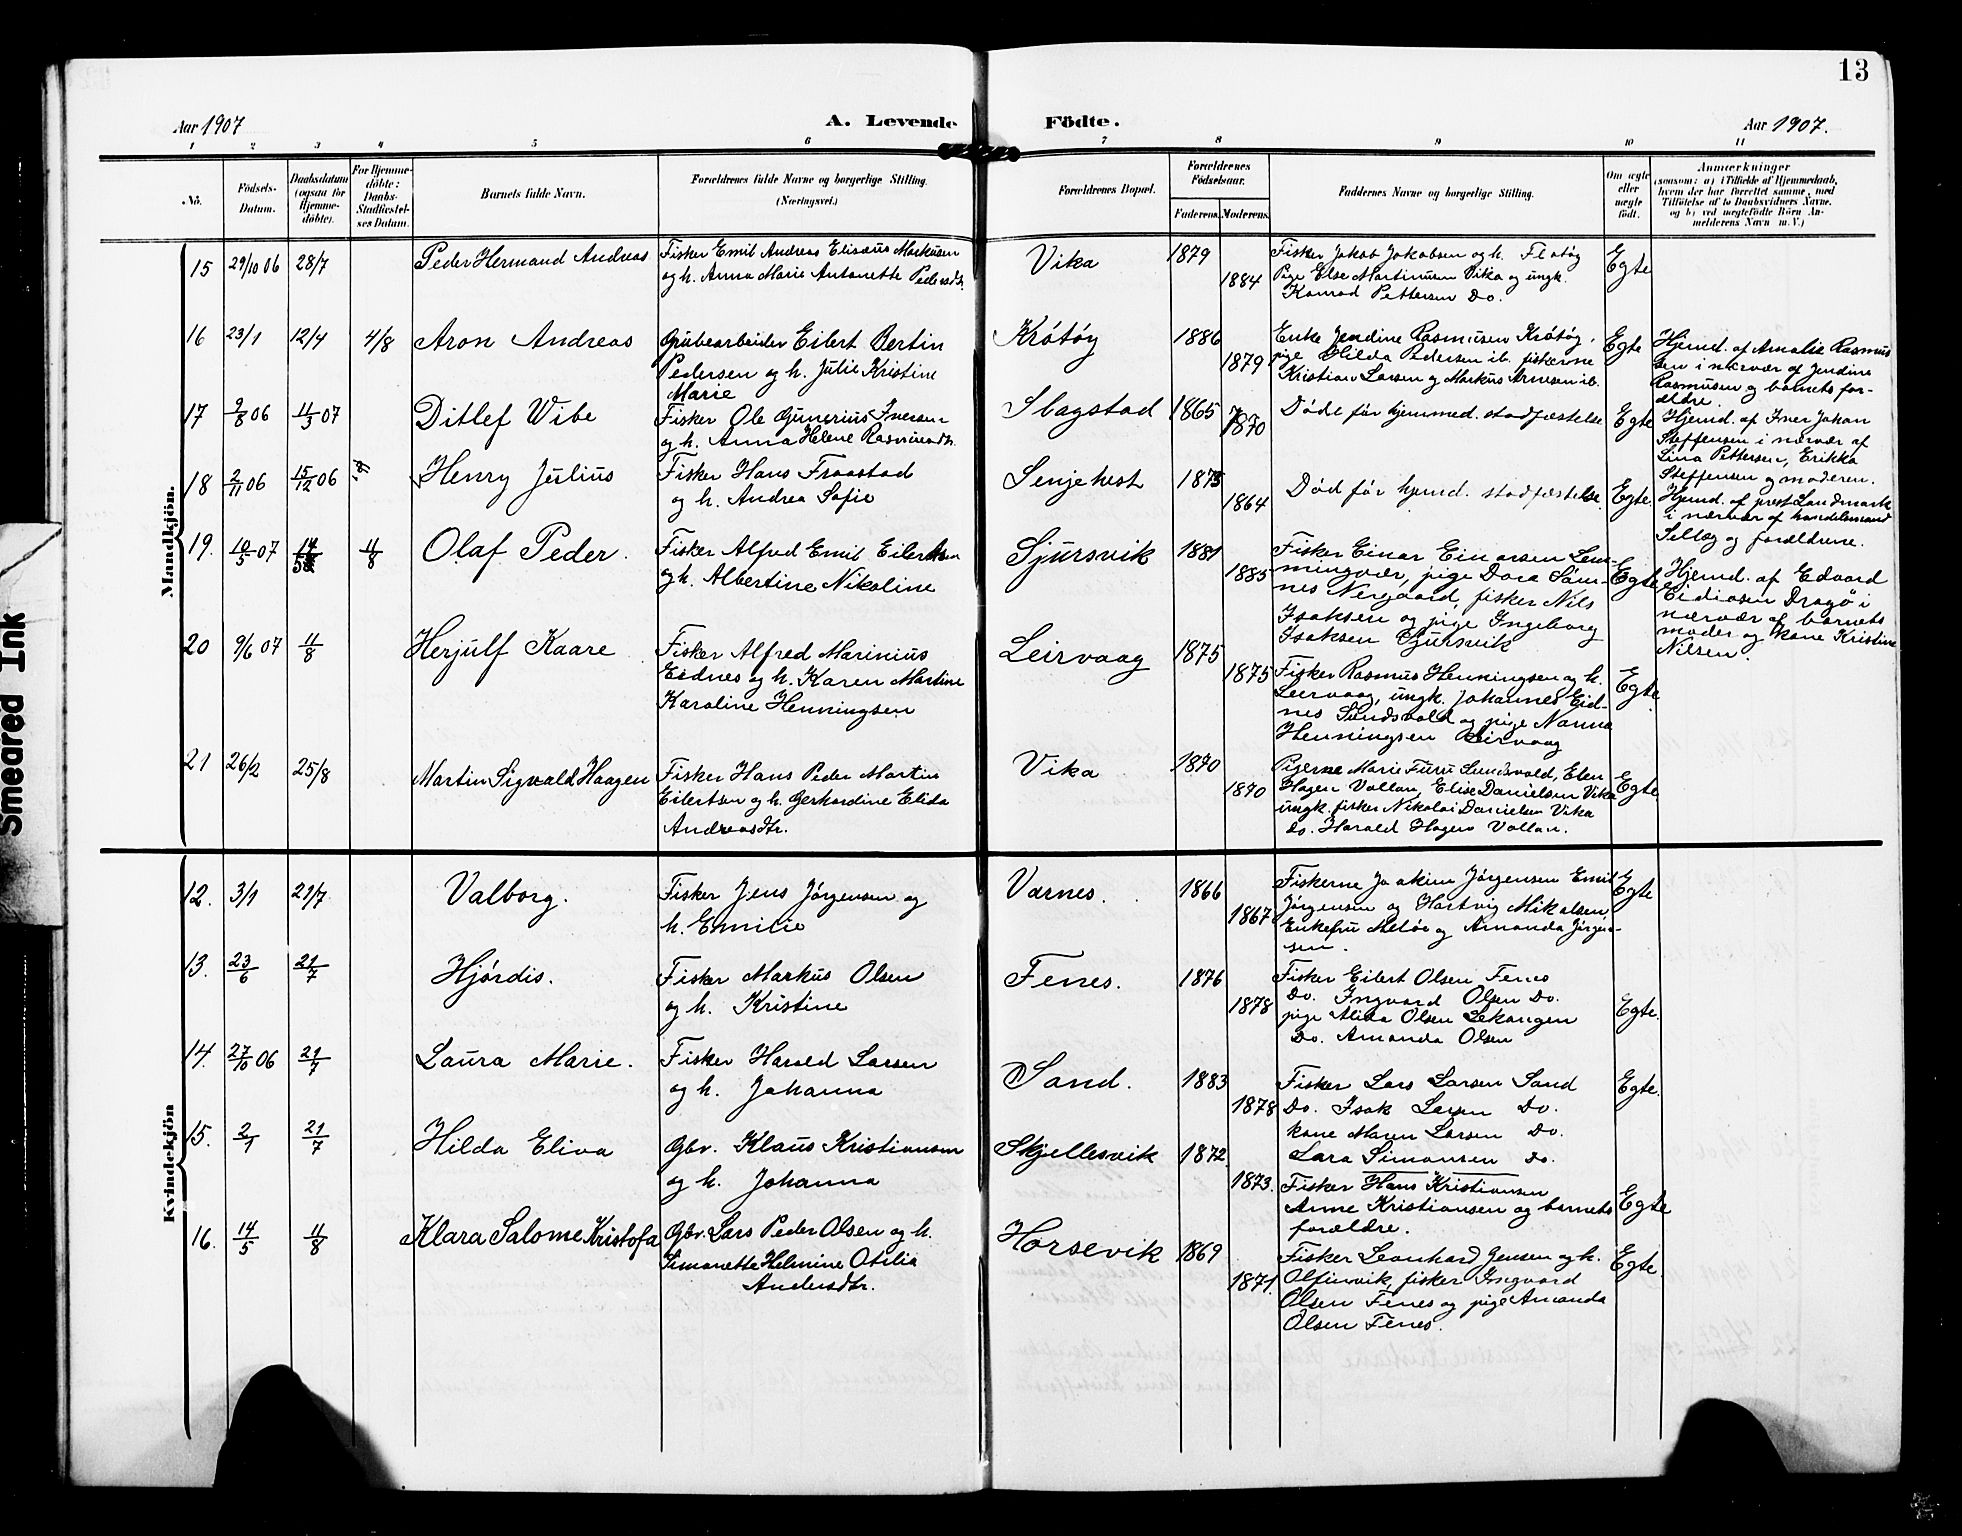 13
Aar 1907
A. Levende Födte.
Aar 1907.
1 2 3 4 5 6 7 8 9 10 11
No.
Födsels-
Datum.
Daabsdatum
(ogsaa for
Hjemme-
döbte).
For Hjemme-
döbte:
Daabs-
Stadfæstel-
ses Datum.
Barnets fulde Navn.
Forældrenes fulde Navne og borgerlige Stilling.
(Næringsvei.)
Forældrenes Bopæl.
Forældrenes
Födselsaar.
Faderens.
Moderens.
Faddernes Navne og borgerlige Stilling.
Om ægte
eller
uægte
födt.
Anmærkninger
(saasom: a) i Tilfælde af Hjemmedaab,
hvem der har forrettet samme, med
Tilföielse af to Daabsvidners Navne.
og b) ved uægtefödte Börn An-
melderens Navn m. V.)
Mandkjön.
15 29/10 06 28/7 Peder Hermand Andreas
Fisker Emil Andreas Elisæus Markusen
og h. Anna Marie Antonette Pedersdtr.
Vika 1879
1884
Fisker Jakob Jakobsen og h. Flatøy
Pige Else Martinusen Vika og ungk.
Konrad Pettersen Do.
Egte
16 23/1 12/4 4/8 Aron Andreas
Grubearbeider Eilert Bertin
Pedersen og h. Julie Kristine
Marie
Krøtøy 1886
1879
Enke Jendine Rasmusen Krøtøy,
pige Hilda Pedersen ib. fiskerne
Kristian Larsen og Markus Arnesen ib.
Egte
Hjemd. af Amalie Rasmus
sen i nærvær af Jendine
Rasmusen og barnets for-
ældre.
17 9/8 06 11/3 07 Ditlef Wibe
Fisker Ole Gunerius Iversen
og h. Anna Helene Rasmusdtr.
Slagstad 1865
1870
Døde før hjemmed. stadfæstelse
Egte
Hjemd. af Iver Johan
Steffensen i nærvær af
Lina Pettersen, Erikka
Steffensen og moderen.
18 2/11 06 15/12 06 Henry Julius
Fisker Hans Fraastad
og h. Andrea Sofie
Senjehest 1873
1864
Død før hjemd. stadfæstelse.
Egte.
Hjemd. af prest Landmark
i nærvær af handelsmand
Selbog og forældrene.
19. 10/5 07 11/8 Olaf Peder.
Fisker Alfred Emil Eilertsen
og h. Albertine Nikoline
Sjursvik 1881
1885
Fisker Einar Einarsen Lem-
mingvær, pige Dora Søm-
nes Nergaard, fisker Nils
Isaksen og pige Ingeborg
Isaksen Sjursvik
Egte.
Hjemd. af Edvard
Eidiasen Dragø i
nærvær af barnets
moder og kone Kristine
Nilsen.
20 9/6 07 11/8 Herjulf Kaare
Fisker Alfred Marinius
Eidnes og h. Karen Martine
Karoline Henningsen
Leirvaag 1875
1875
Fisker Rasmus Henningsen og h.
Leirvaag, ungk. Johannes Eid-
nes Sundsvold og pige Nanna
Henningsen Leirvaag
Egte.
21 26/2 25/8 Martin Sigvald Haagen
Fisker Hans Peder Martin
Eilertsen og h. Gerhardine Elida
Andreasdtr.
Vika 1870
1870
Pigerne Marie Furu Sundsvold, Elen
Hagen Vollan, Elise Danielsen Vika
ungk. fisker Nikolai Danielsen Vika
Do. Harald Hagen Vollan.
Egte.
Kvindekjön
12. 3/1 21/7 Valborg.
Fisker Jens Jørgensen og
h. Emilie
Varnes. 1866
1867
Fiskerne Joakim Jørgensen Emil
Jørgensen og Hartvig Mikalsen,
Enkefru Meløe og Amanda Jørgen-
sen.
Egte
13. 23/6 21/7 Hjørdis.
Fisker Markus Olsen
og h. Kristine
Fenes. 1876
1878
Fisker Eilert Olsen Fenes
Do. Ingvard Olsen Do.
pige Alida Olsen Lekangen
Do. Amanda Olsen
Egte.
14. 27/10 06 21/7 Laura Marie.
Fisker Harald Larsen
og h. Johanna
Sand. 1883
1878
Fisker Lars Larsen Sand
Do. Isak Larsen Do.
kone Maren Larsen Do.
Lara Simonsen Do.
Egte.
15. 2/1 21/7 Hilda Eliva
Gbr. Klaus Kristiansen
og h. Johanna
Skjellesvik 1872
1873.
Fisker Hans Kristiansen
Anne Kristiansen og barnets
forældre.
Egte
16. 14/5 11/8 Klara Salome Kristofa
Gbr. Lars Peder Olsen og h.
Simonette Helmine Otilia
Andersdtr.
Horsevik 1869
1871.
Fisker Leonhard Jensen og h.
Olfinvik, fisker Ingvard
Olsen Fenes og pige Amanda
Olsen Fenes.
Egte.
Smeared Ink